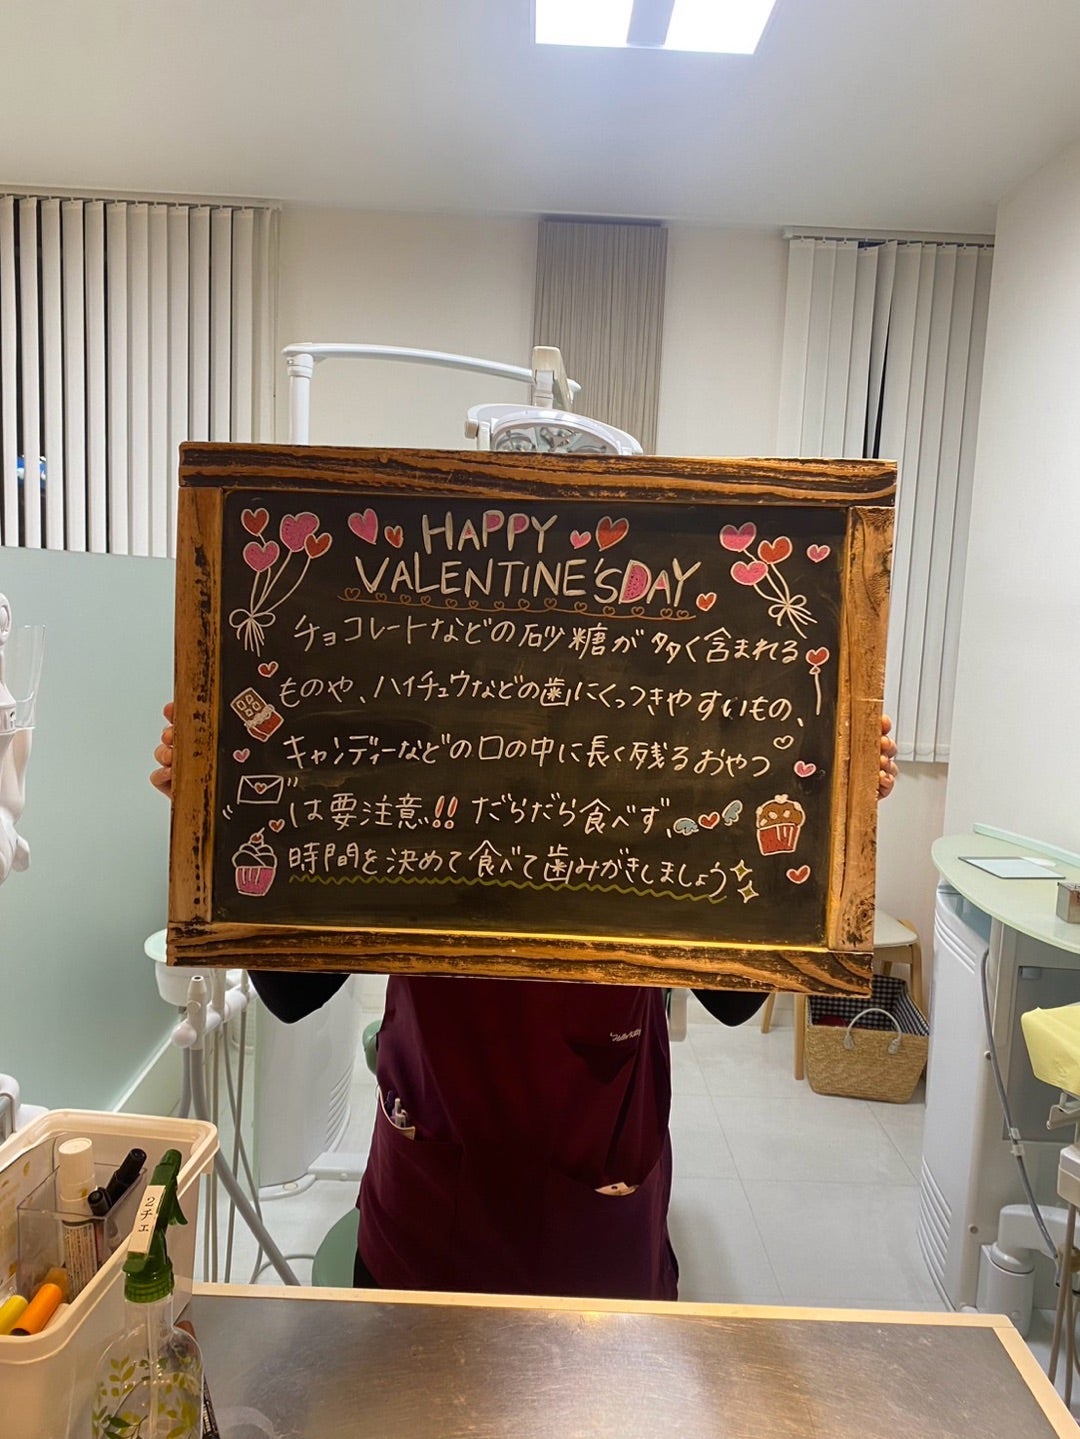 HAPPY
VALENTINE'S DAY
チョコレートなどの砂糖が多く含まれる
ものや、ハイチュウなどの歯にくっつきやすいもの、
キャンディーなどの口の中に長く残るおやつ
は要注意!! だらだら食べず、
時間を決めて食べて歯みがきしましょう
Hello Kitty
2チェ